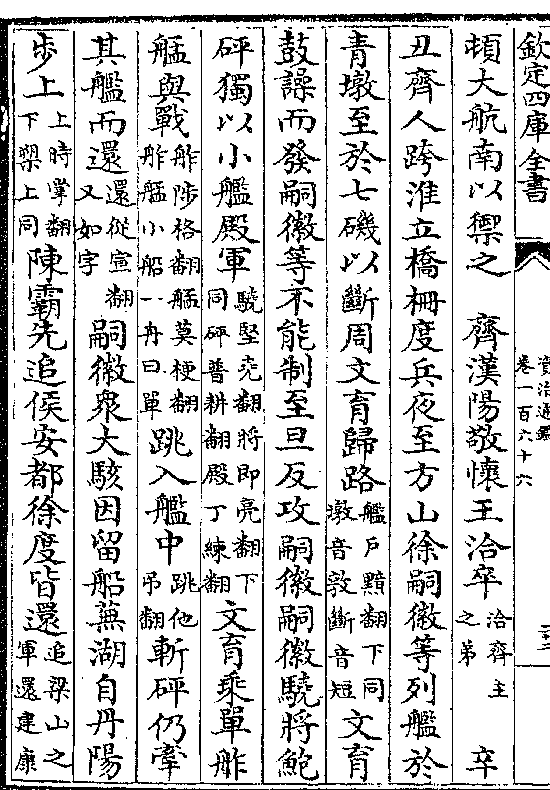 欽定四庫全書
資治通鑑
卷一百六十六
頓大航南以禦之　齊漢陽敬懷王洽卒洽齊主之弟　辛
丑齊人跨淮立橋柵度兵夜至方山徐嗣徽等列艦於
青墩至於七磯以斷周文育歸路艦戶黯翻下同墩音敦斷音短文育
鼓譟而發嗣徽等不能制至旦反攻嗣徽嗣徽驍將鮑
砰獨以小艦殿軍驍堅堯翻將即亮翻下同砰普耕翻殿丁練翻文育乘單舴
艋與戰舴陟格翻艋莫梗翻舴艋小船一舟曰單跳入艦中跳他弔翻斬砰仍牽
其艦而還還從宣翻又如字嗣徽衆大駭因留船蕪湖自丹陽
步上上時掌翻下禦上同陳霸先追侯安都徐度皆還追梁山之軍還建康